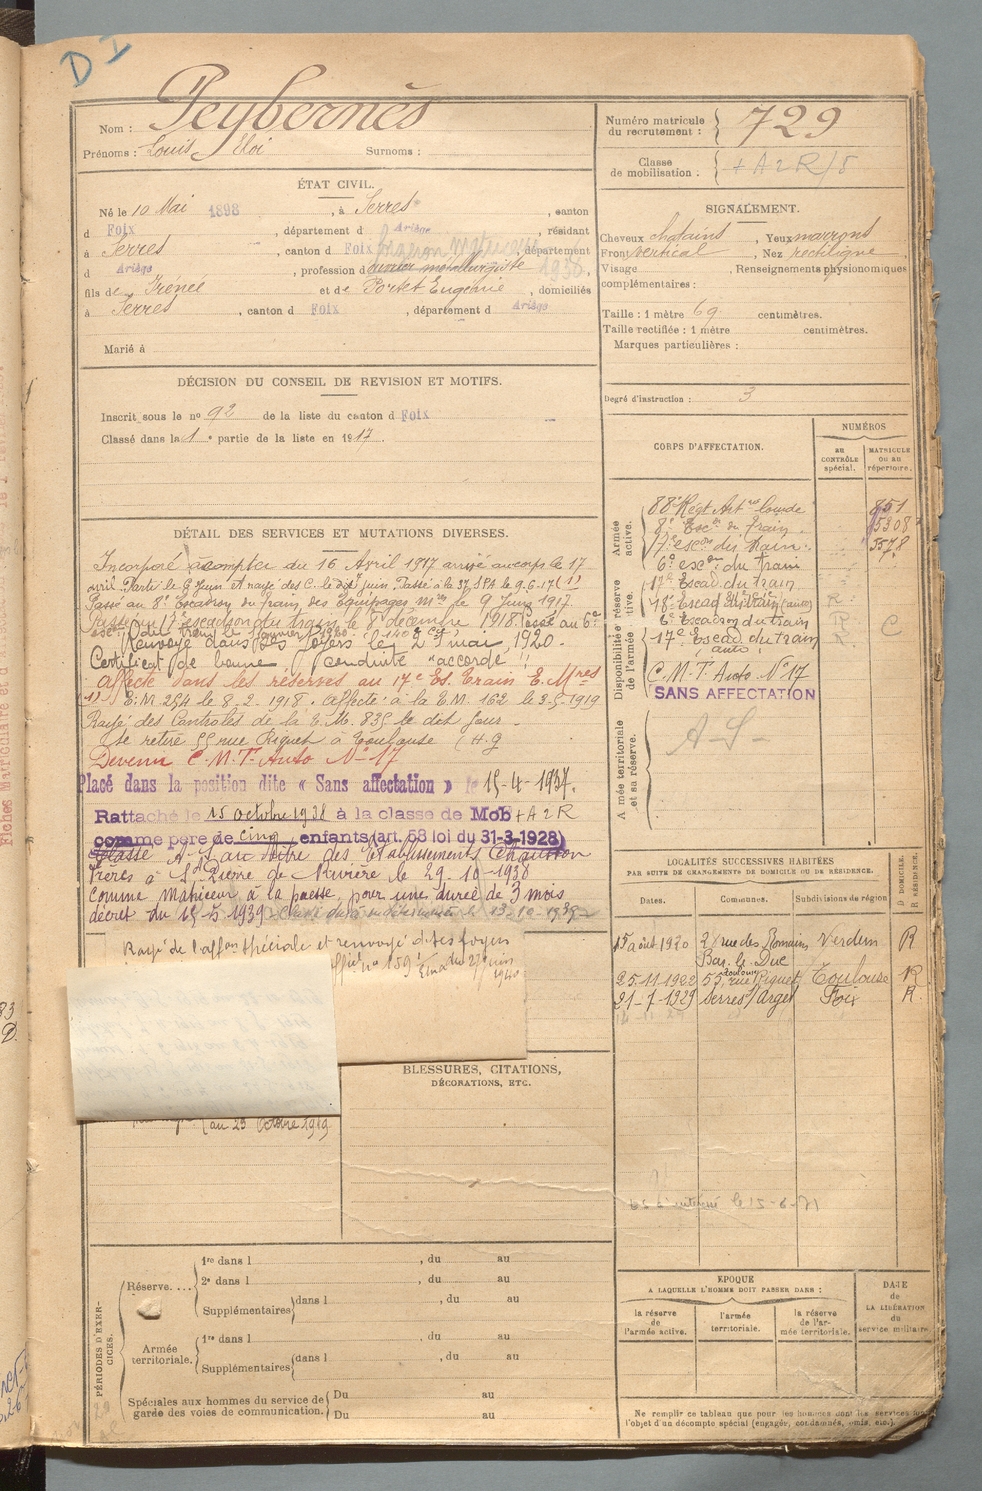 D I
Nom : Peybernès
Prénoms : Louis Eloi Surnoms :
Numéro matricule du recrutement : 729
Classe de mobilisation : + A 2 R/5
ÉTAT CIVIL.
Né le 10 Mai 1898, à Serres, canton
d Foix, département d Ariège, résidant
à Serres, canton d Foix, département
d Ariège, profession d ouvrier métallurgiste 1938.
fils de Irénée et de Portet Eugénie, domiciliés
à Serres, canton d Foix, département d Ariège
Marié à
SIGNALEMENT.
Cheveux chatains, Yeux marrons
Front vertical, Nez rectiligne,
Visage , Renseignements physionomiques
complémentaires :
Taille : 1 mètre 69 centimètres.
Taille rectifiée : 1 mètre centimètres.
Marques particulières :
Degré d'instruction : 3
DÉCISION DU CONSEIL DE REVISION ET MOTIFS.
Inscrit sous le no 92 de la liste du canton d Foix
Classé dans la 1e partie de la liste en 1917.
CORPS D'AFFECTATION.
NUMÉROS
AU CONTRÔLE spécial.
MATRICULE OU AU répertoire.
Armée active.
88e Régt Artie lourde 851
8e Escon du train 15308
7e escon du train 5578
6e escon du train
Disponibilité et réserve de l'armée active.
17e Escad. du train
18e Escad du train (auto) R
6e Escadron du train R C
17e Escad. du train R
auto
C.M.T. Auto No 17
SANS AFFECTATION
Armée territoriale et sa réserve.
A-S-
DÉTAIL DES SERVICES ET MUTATIONS DIVERSES.
Incorporé à compter du 16 Avril 1917 arrivé au corps le 17
avril. Parti le 9 Juin et rayé des C. le dit juin. Passé à la 37 SPA le 9.6.17 (1)
Passé au 8e Escadron du train des Equipages Mres le 9 Juin 1917
Passé au 17e escadron du train le 8 décembre 1918. Passé au 6e
escon du train le janvier 1920.
Renvoyé dans ses foyers le 29 mai 1920.
Certificat de bonne conduite "accordé"
Affecté dans les réserves au 17e Es. Train E. Mres
(1) E.M. 254 le 8-2-1918. Affecté à la E.M. 162 le 3-5-1919
Rayé des Contrôles de la E.M. 835 le dit jour.
Se retire 55 rue Riquet à Toulouse (H.G
Devenu C.M.T. Auto No 17
Placé dans la position dite « Sans affectation » le 15-4-1937.
Rattaché le 15 octobre 1938 à la classe de Mob + A 2 R
comme père de cinq enfants (art. 58 loi du 31-3-1928)
Classé A-S au titre des Etablissements Chausson
Frères à la Rivière le 29-10-1938
comme à la presse, pour une durée de 3 mois
décret du 15-5-1939
Rayé de l'affon spéciale et renvoyé dans foyers
no 159 du 27 juin
1940
au 23 Octobre 1919
BLESSURES, CITATIONS,
DÉCORATIONS, ETC.
LOCALITÉS SUCCESSIVES HABITÉES
PAR SUITE DE CHANGEMENTS DE DOMICILE OU DE RÉSIDENCE.
Dates. Communes. Subdivisions de région D DOMICILE. R RÉSIDENCE.
15 août 1920 21 rue des Romains Verdun R
Bar le Duc
25.11.1922 55, rue Riquet Toulouse R
Toulouse
21-7-1929 Serres s/Arget Foix R.
PÉRIODES D'EXERCICES.
Réserve....
1re dans l , du au
2e dans l , du au
Supplémentaires dans l , du au
Armée territoriale.
1re dans l , du au
Supplémentaires dans l , du au
Spéciales aux hommes du service de garde des voies de communication.
Du au
Du au
EPOQUE
A LAQUELLE L'HOMME DOIT PASSER DANS :
la réserve de l'armée active.
l'armée territoriale.
la réserve de l'armée territoriale.
DATE de LA LIBÉRATION du service militaire.
Ne remplir ce tableau que pour les hommes dont les services
l'objet d'un décompte spécial (engagés, condamnés, omis, etc.).